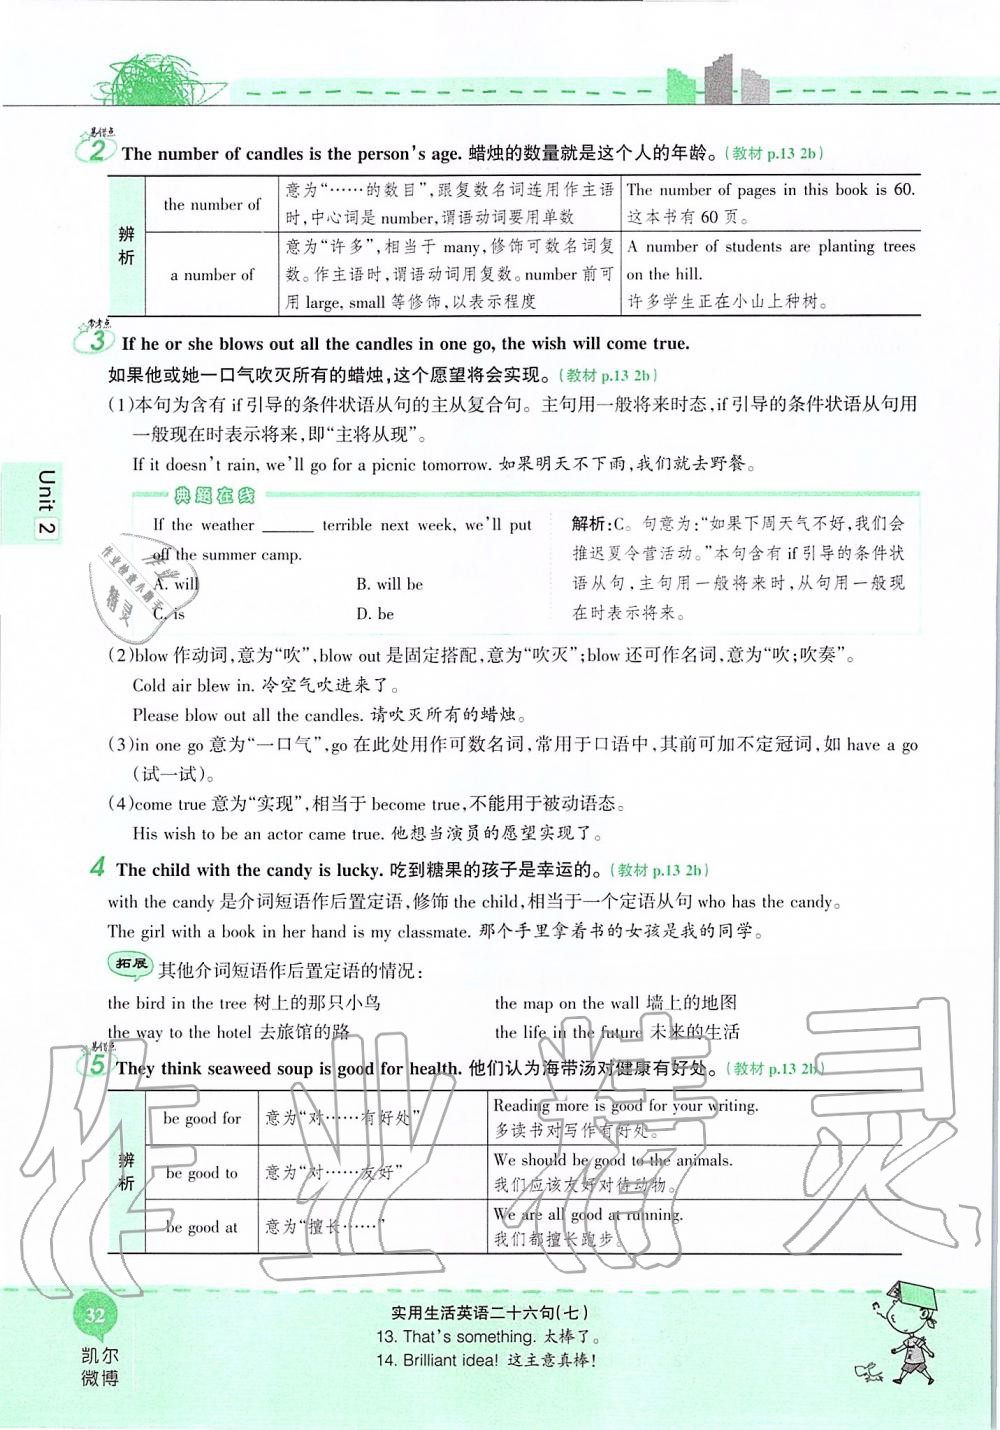 易错点
2 The number of candles is the person's age. 蜡烛的数量就是这个人的年龄。(教材 p.13 2b)
辨析
the number of
意为“……的数目”,跟复数名词连用作主语
时,中心词是 number,谓语动词要用单数
The number of pages in this book is 60.
这本书有 60 页。
a number of
意为“许多”,相当于 many,修饰可数名词复
数。作主语时,谓语动词用复数。number 前可
用 large, small 等修饰,以表示程度
A number of students are planting trees
on the hill.
许多学生正在小山上种树。
常考点
3 If he or she blows out all the candles in one go, the wish will come true.
如果他或她一口气吹灭所有的蜡烛,这个愿望将会实现。(教材 p.13 2b)
(1)本句为含有 if 引导的条件状语从句的主从复合句。主句用一般将来时态,if 引导的条件状语从句用
一般现在时表示将来,即“主将从现”。
If it doesn't rain, we'll go for a picnic tomorrow. 如果明天不下雨,我们就去野餐。
典题在线
If the weather ______ terrible next week, we'll put
off the summer camp.
A. will B. will be
C. is D. be
解析:C。句意为:“如果下周天气不好,我们会
推迟夏令营活动。”本句含有 if 引导的条件状
语从句,主句用一般将来时,从句用一般现
在时表示将来。
(2)blow 作动词,意为“吹”,blow out 是固定搭配,意为“吹灭”;blow 还可作名词,意为“吹;吹奏”。
Cold air blew in. 冷空气吹进来了。
Please blow out all the candles. 请吹灭所有的蜡烛。
(3)in one go 意为“一口气”,go 在此处用作可数名词,常用于口语中,其前可加不定冠词,如 have a go
(试一试)。
(4)come true 意为“实现”,相当于 become true,不能用于被动语态。
His wish to be an actor came true. 他想当演员的愿望实现了。
4 The child with the candy is lucky. 吃到糖果的孩子是幸运的。(教材 p.13 2b)
with the candy 是介词短语作后置定语,修饰 the child,相当于一个定语从句 who has the candy。
The girl with a book in her hand is my classmate. 那个手里拿着书的女孩是我的同学。
拓展 其他介词短语作后置定语的情况:
the bird in the tree 树上的那只小鸟 the map on the wall 墙上的地图
the way to the hotel 去旅馆的路 the life in the future 未来的生活
易错点
5 They think seaweed soup is good for health. 他们认为海带汤对健康有好处。(教材 p.13 2b)
辨析
be good for
意为“对……有好处”
Reading more is good for your writing.
多读书对写作有好处。
be good to
意为“对……友好”
We should be good to the animals.
我们应该友好对待动物。
be good at
意为“擅长……”
We are all good at running.
我们都擅长跑步。
Unit 2
作业
作业检查小助手
精灵
作业精灵
32
凯尔
微博
实用生活英语二十六句(七)
13. That's something. 太棒了。
14. Brilliant idea! 这主意真棒!